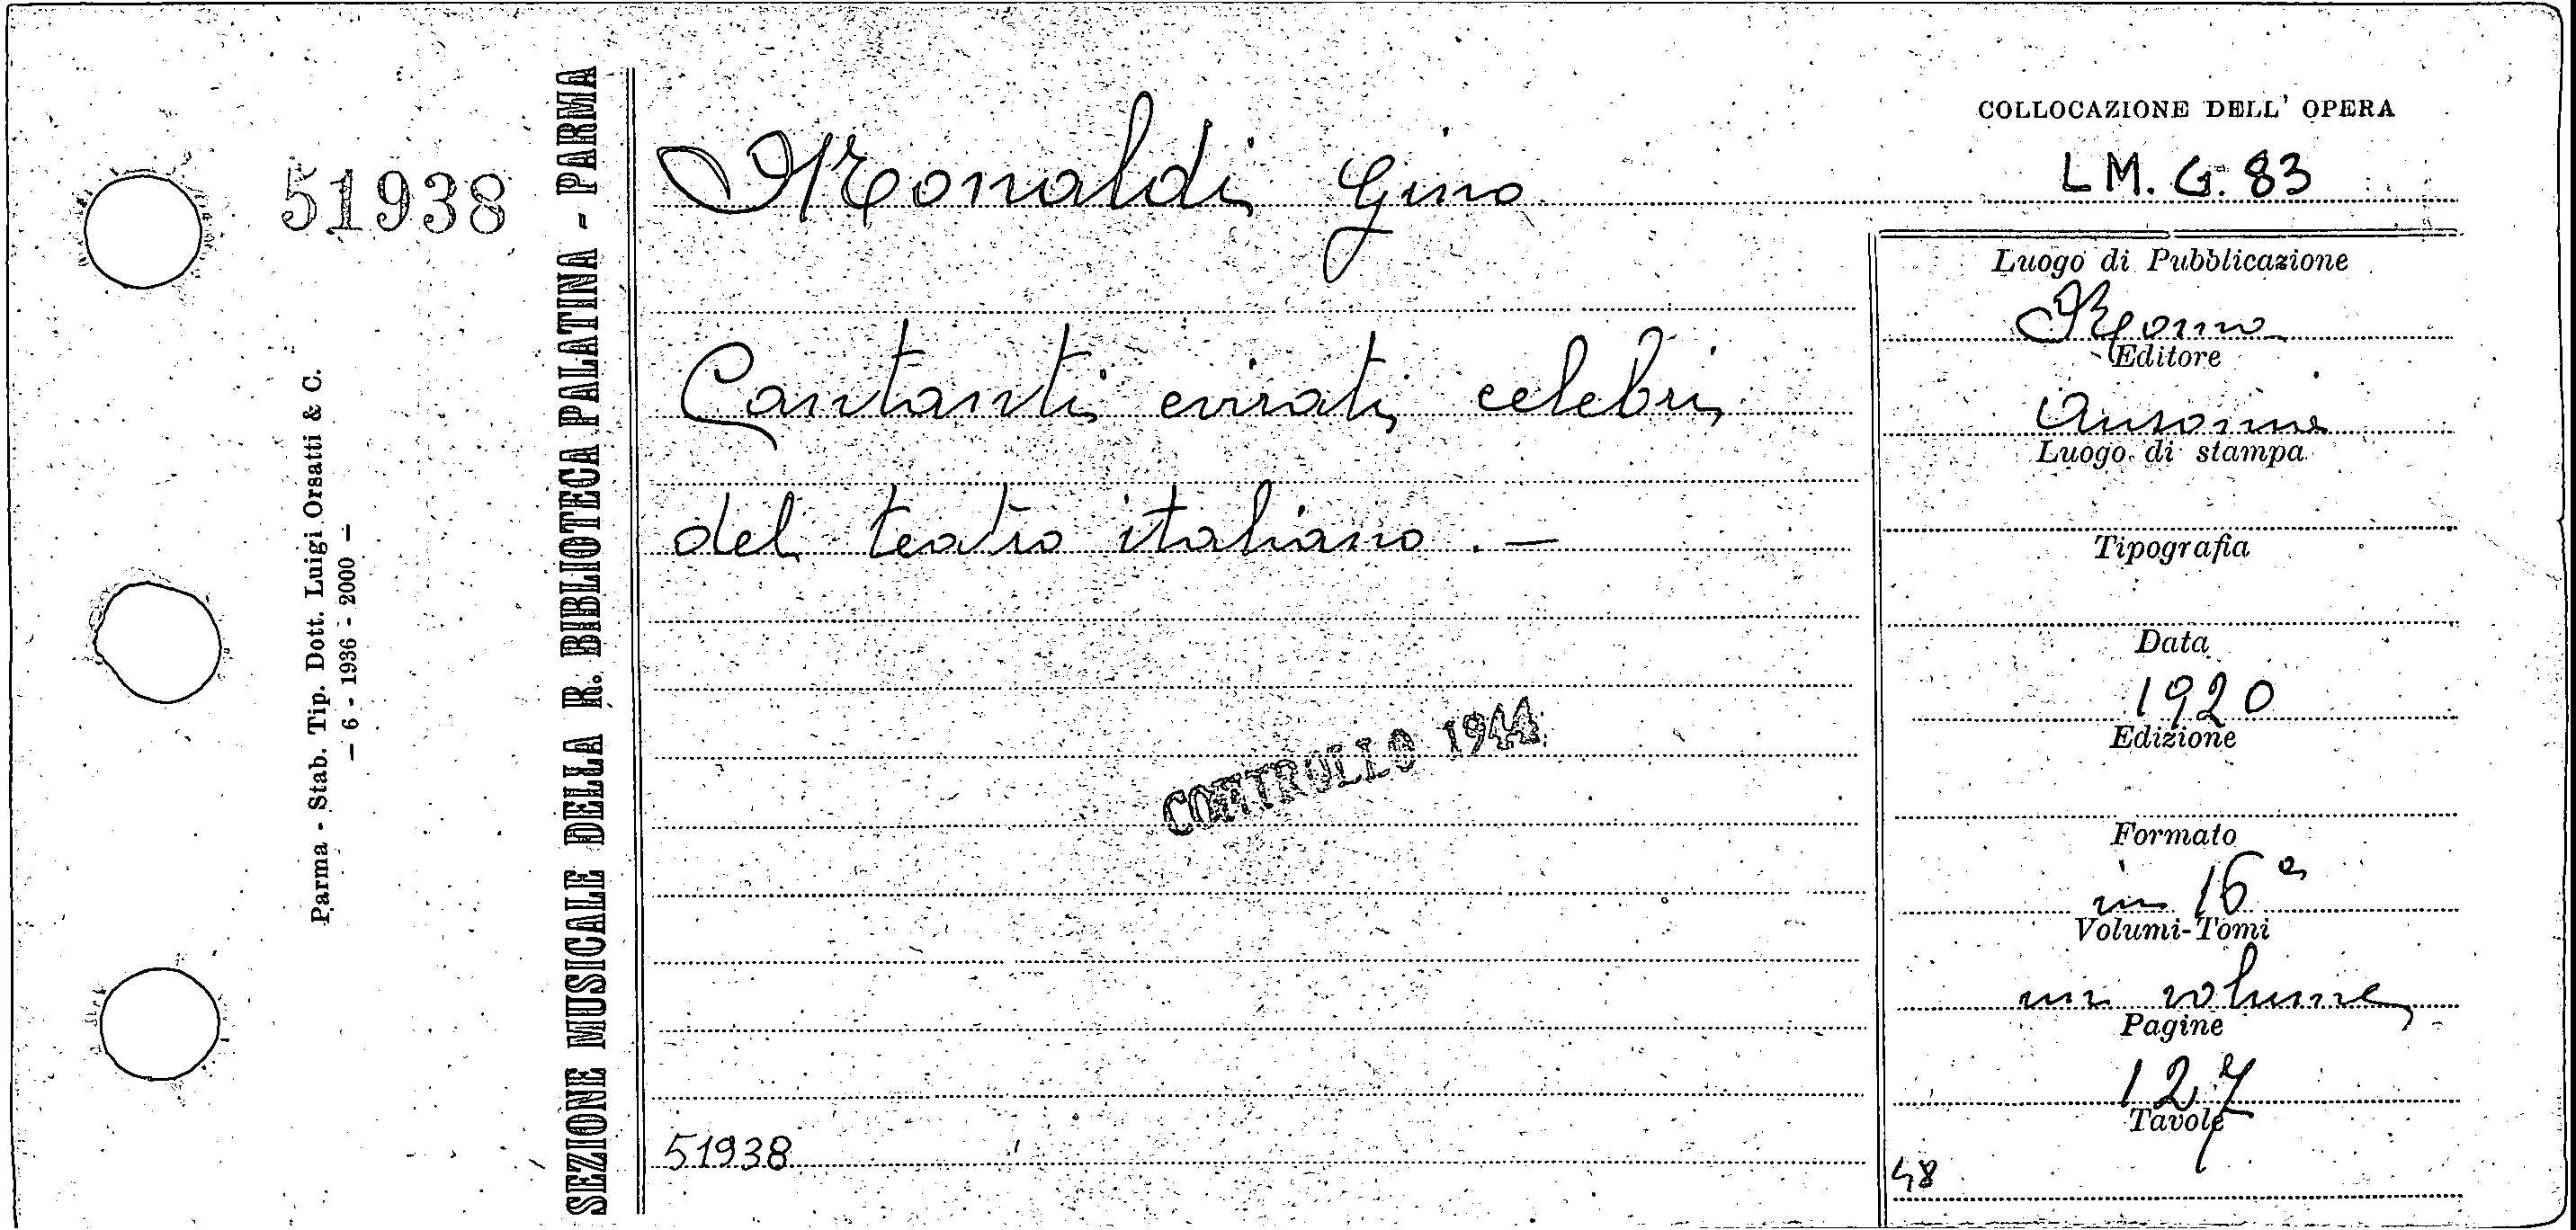 51938
Parma - Stab. Tip. Dott. Luigi Orsatti & C.
— 6 - 1936 - 2000 —
SEZIONE MUSICALE DELLA R. BIBLIOTECA PALATINA - PARMA
Monaldi Gino
Cantanti evirati celebri
del teatro italiano . —
CONTROLLO 1944
51938
COLLOCAZIONE DELL' OPERA
L M. G. 83
Luogo di Pubblicazione
Roma
Editore
Ausonia
Luogo di stampa
Tipografia
Data
1920
Edizione
Formato
in 16°
Volumi-Tomi
un volume
Pagine
127
Tavole
48